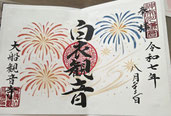 奉拝
令和七年
八月三十一日
白衣観音
大船観音寺